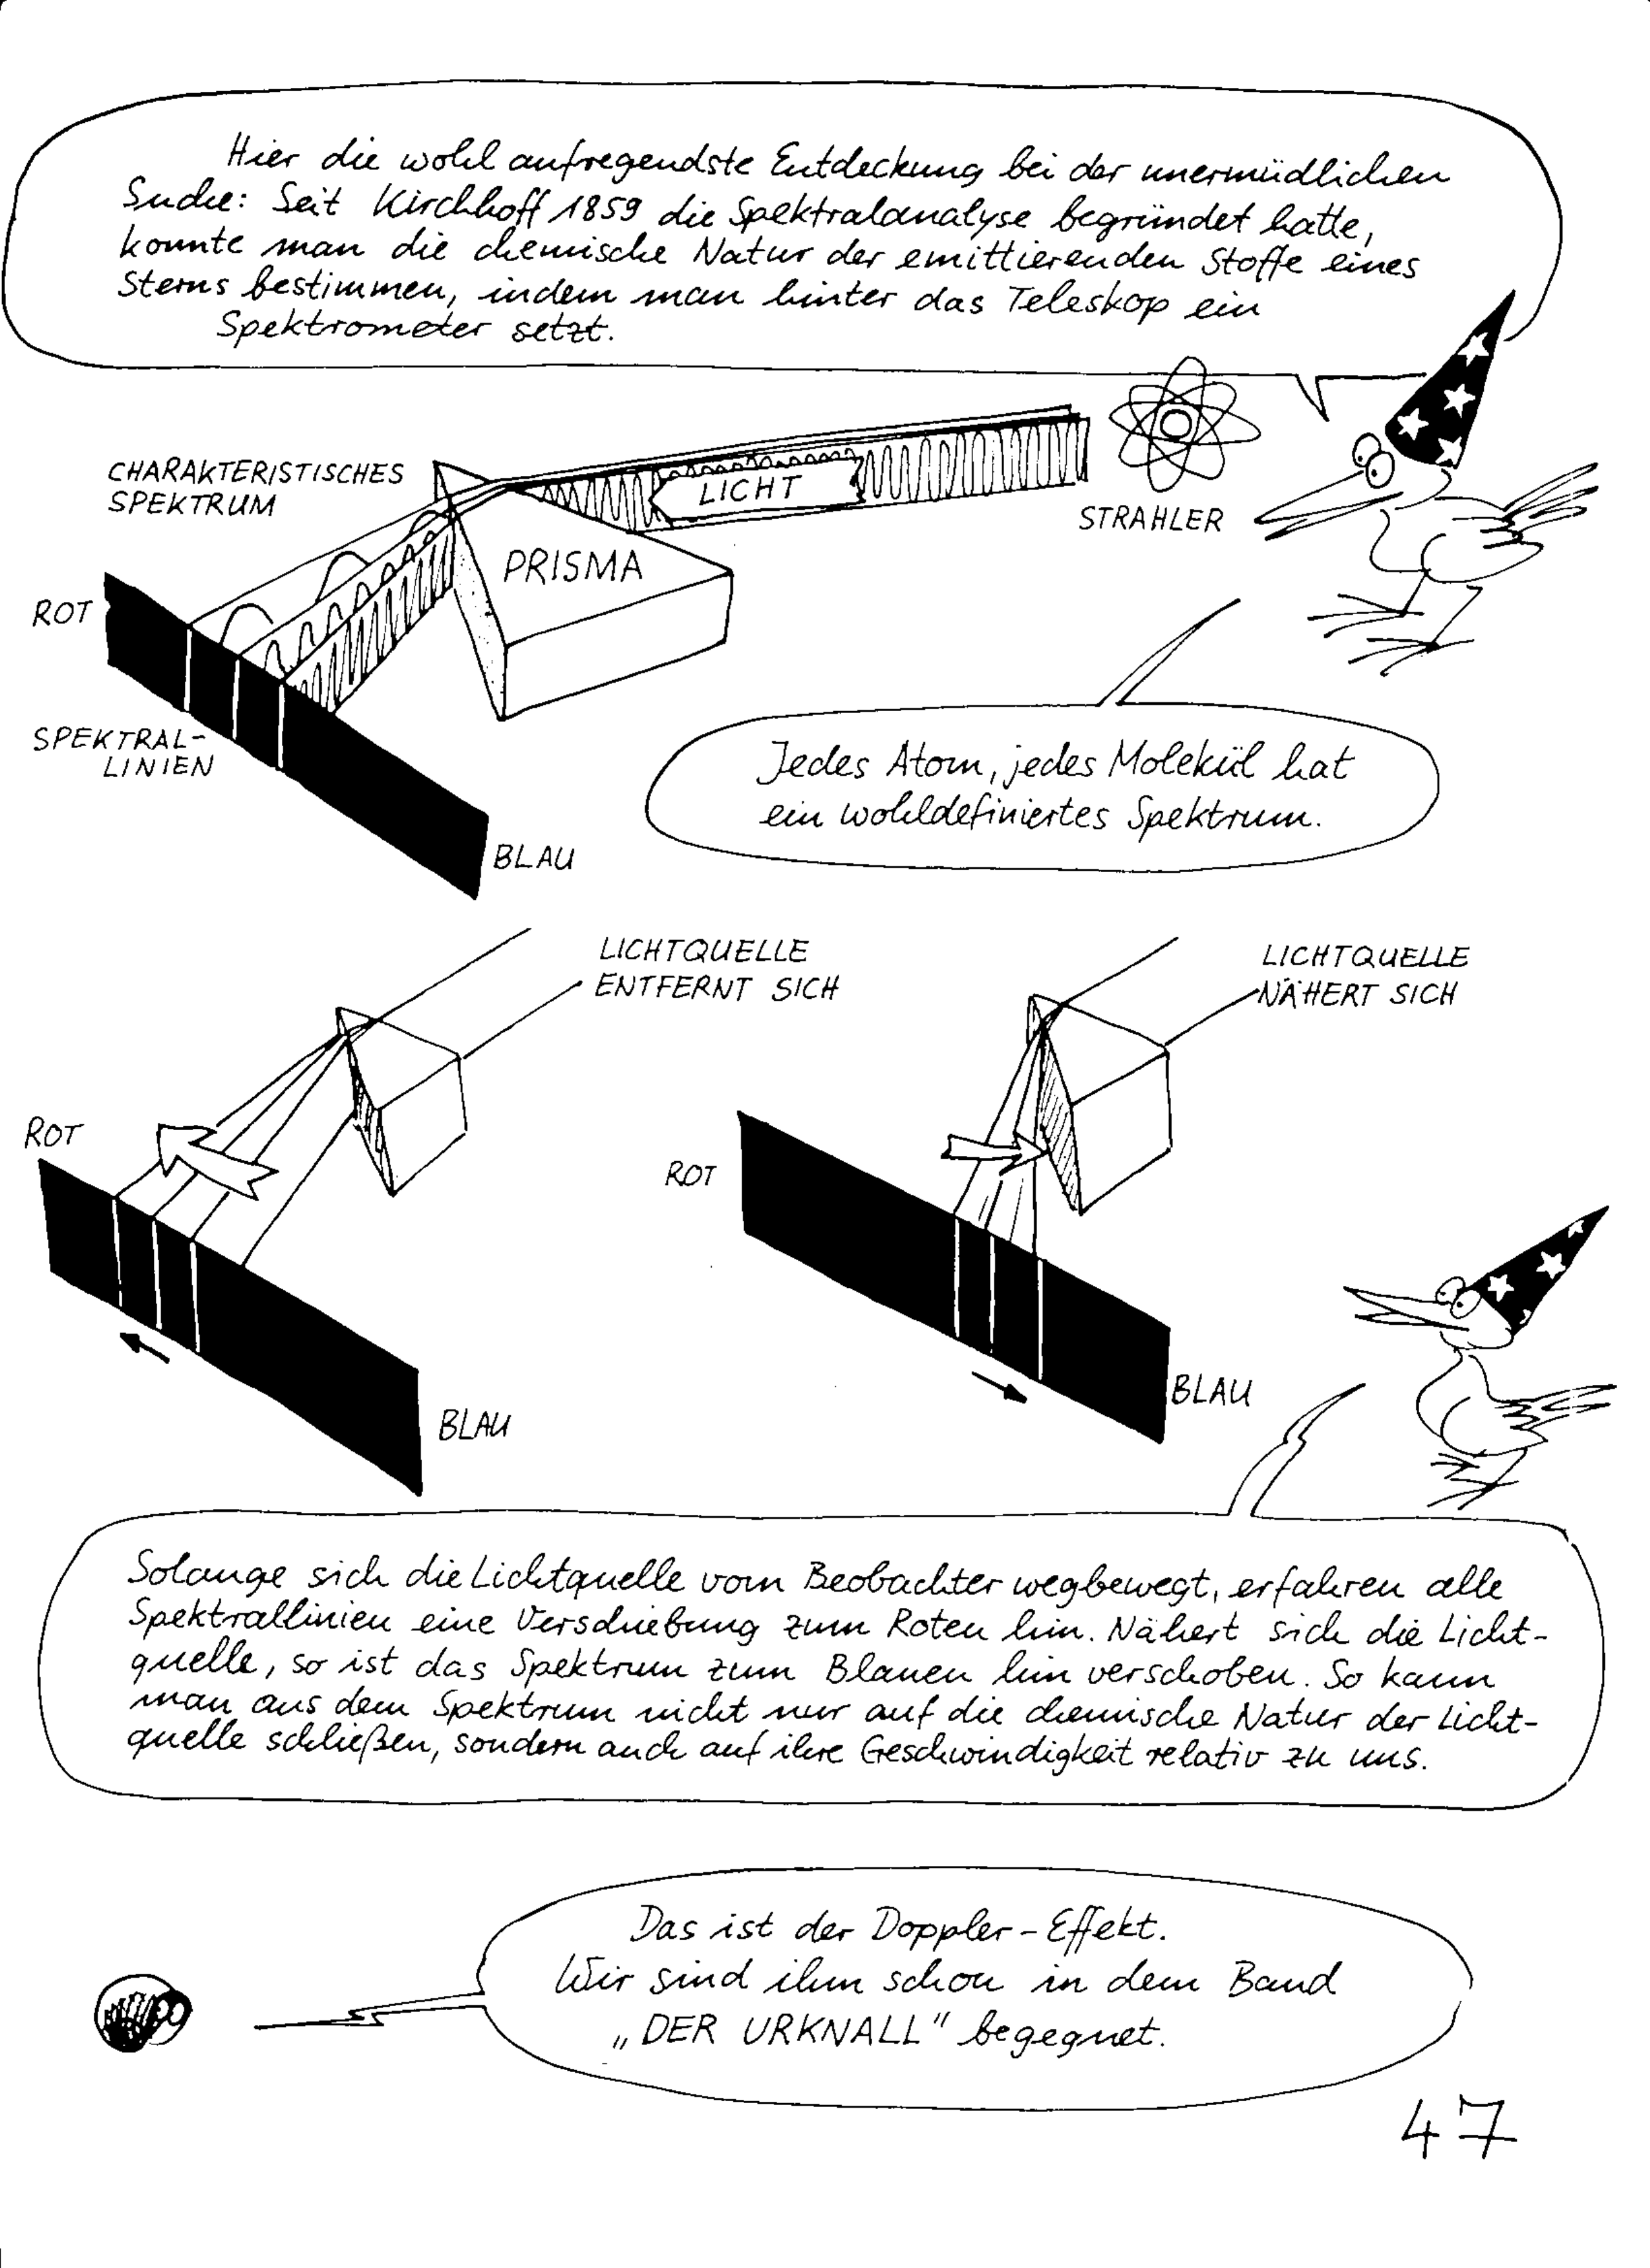 Hier die wohl aufregendste Entdeckung bei der unermüdlichen
Suche: Seit Kirchhoff 1859 die Spektralanalyse begründet hatte,
konnte man die chemische Natur der emittierenden Stoffe eines
Sterns bestimmen, indem man hinter das Teleskop ein
Spektrometer setzt.
CHARAKTERISTISCHES
SPEKTRUM
LICHT
STRAHLER
PRISMA
ROT
SPEKTRAL-
LINIEN
BLAU
Jedes Atom, jedes Molekül hat
ein wohldefiniertes Spektrum.
LICHTQUELLE
ENTFERNT SICH
ROT
BLAU
LICHTQUELLE
NÄHERT SICH
ROT
BLAU
Solange sich die Lichtquelle vom Beobachter wegbewegt, erfahren alle
Spektrallinien eine Verschiebung zum Roten hin. Nähert sich die Licht-
quelle, so ist das Spektrum zum Blauen hin verschoben. So kann
man aus dem Spektrum nicht nur auf die chemische Natur der Licht-
quelle schließen, sondern auch auf ihre Geschwindigkeit relativ zu uns.
Das ist der Doppler-Effekt.
Wir sind ihm schon in dem Band
„DER URKNALL" begegnet.
47